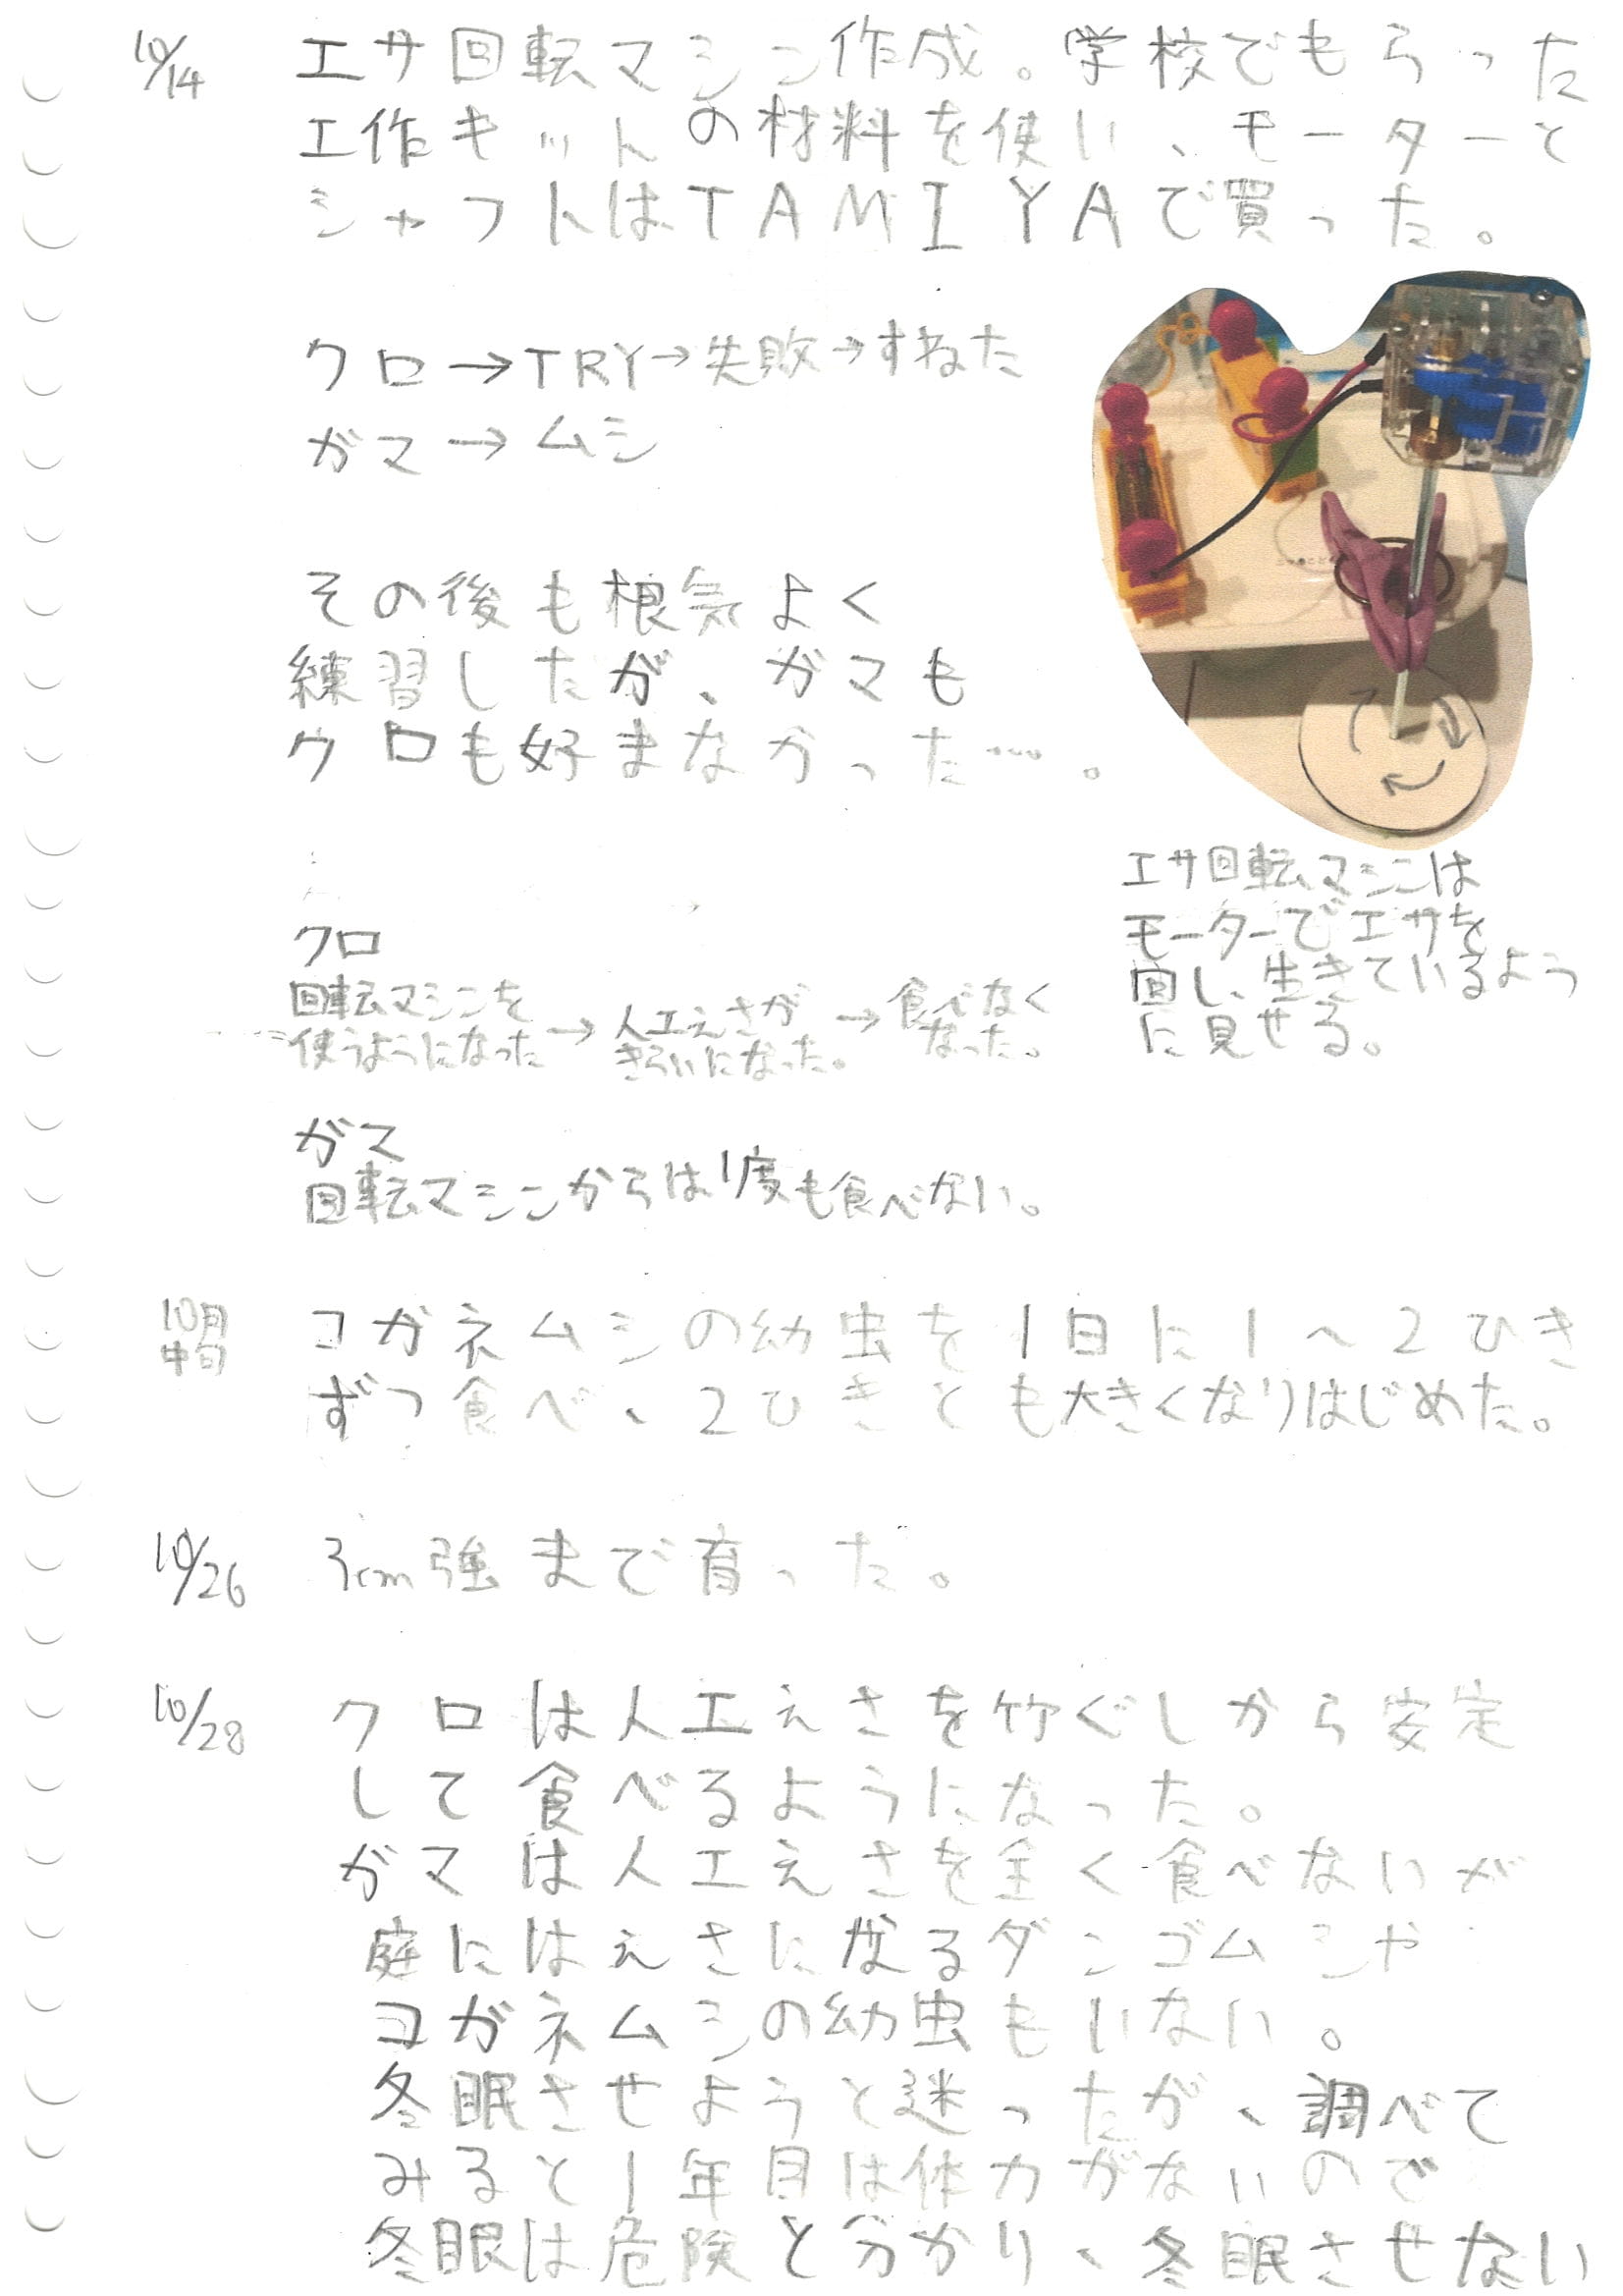 10/14 エサ回転マシン作成。学校でもらった
工作キットの材料を使い、モーターと
シャフトはTAMIYAで買った。
クロ→TRY→失敗→すねた
ガマ→ムシ
その後も根気よく
練習したが、ガマも
クロも好まなかった…。
エサ回転マシンは
モーターでエサを
回し、生きているよう
に見せる。
クロ
回転マシンを
使うようになった→人工えさが
きらいになった。→食べなく
なった。
ガマ
回転マシンからは1度も食べない。
10月
中旬
コガネムシの幼虫を1日に1〜2ひき
ずつ食べ、2ひきとも大きくなりはじめた。
10/26 3cm強まで育った。
10/28 クロは人工えさを竹ぐしから安定
して食べるようになった。
ガマは人工えさを全く食べないが
庭にはえさになるダンゴムシや
コガネムシの幼虫もいない。
冬眠させようと迷ったが、調べて
みると1年目は体力がないので
冬眠は危険と分かり、冬眠させない